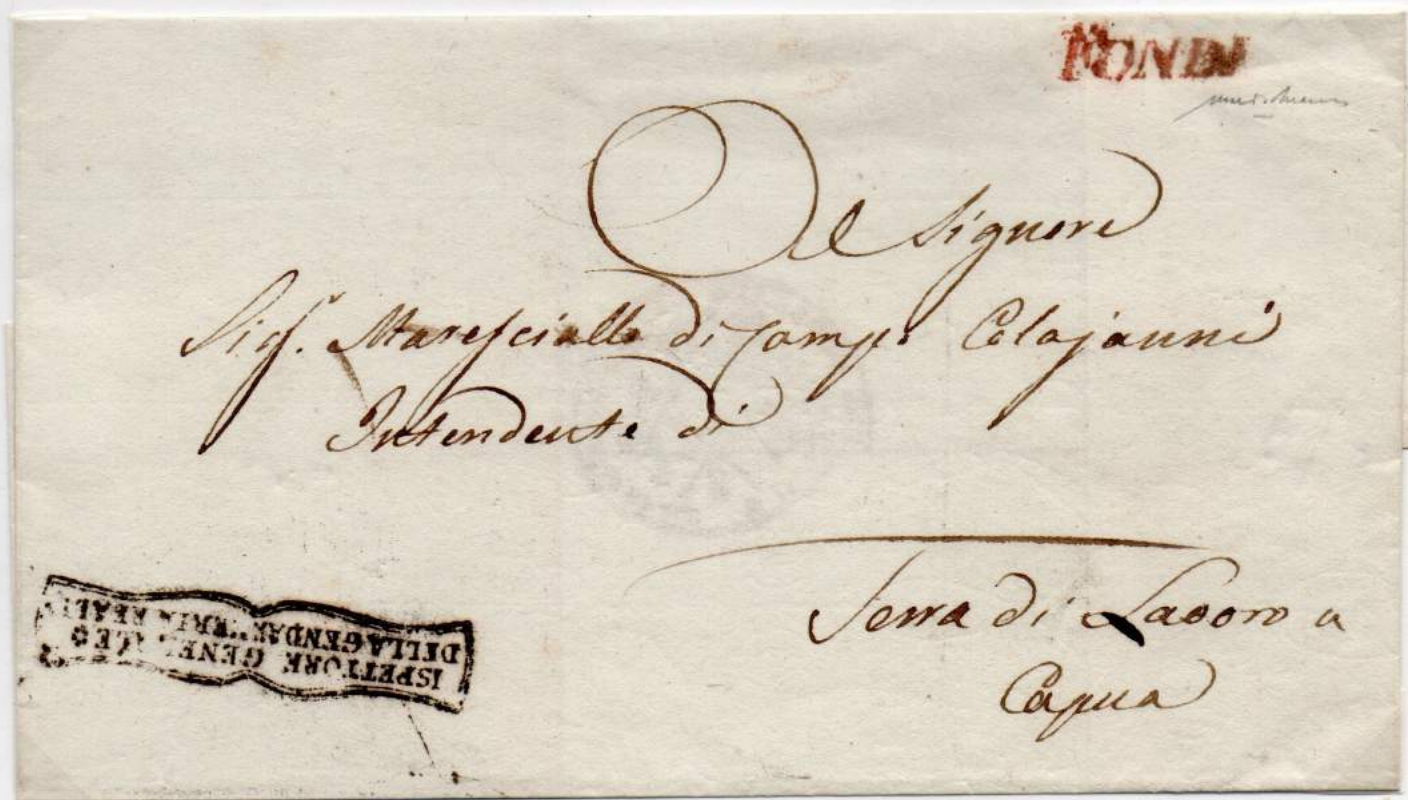 FONDI
Al Signore
Sig.r Maresciallo di Campo Colajanni
Intendente di
Terra di Lavoro a
Capua
ISPETTORE GENERALE
DELLA GENDARMERIA REALE